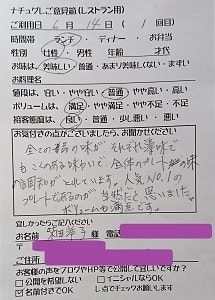 ナチュグレご意見箱(レストラン用)
ご利用日 6月 14日 ( / 1回目)
時間帯 ランチ ・ ディナー ・ お弁当
性別 女性 ・ 男性 年齢 才代
お味は、美味しい・普通・あまり美味しくない・まずい
お料理名
値段は、安い・やや安い・普通・やや高い・高い
ボリュームは、満足・やや満足・普通・やや不足・不足
接客態度は、良い・普通・少し悪い・悪い
お気付きの点がございましたら、お聞かせください
全ての精の味が それぞれ滋味で
もこくのある味わいで、全体のプレートの味
の調和がとれています。人気No.1の
プレートであるのが 当然だと思いました。
ボリュームも満点です。
宜しかったらご記入ください
お名前 様 電話
ご住所
お客様の声をブログやHP等で公開して宜しいですか?
□公開を希望しない □イニシャルならOK
☑名前付きでOK し点でチェックお願いします